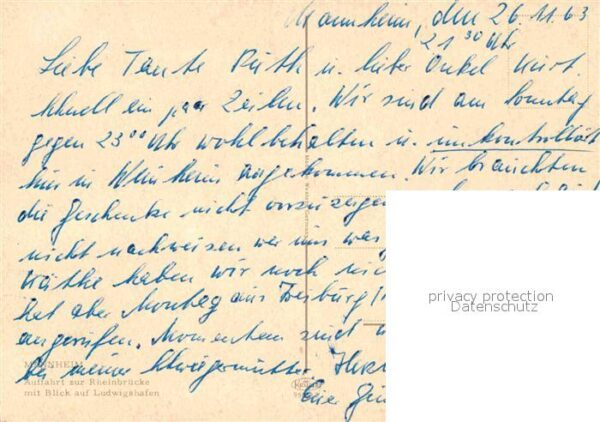 Mannheim, den 26.11.63
21 30 Uhr
Liebe Tante Ruth u. lieber Onkel Kurt.
Schnell ein paar Zeilen. Wir sind am Sonntag
gegen 23 00 Uhr wohlbehalten u. unkontrolliert
hier in Weinheim angekommen. Wir brauchten
die Geschenke nicht vorzuzeigen
nicht nachweisen wer uns was
Käthe haben wir noch nic
hat aber Montag aus Freiburg
angerufen. Momentan sind
bei meiner Schwiegermutter. Herz
Eure
MANNHEIM
Auffahrt zur Rheinbrücke
mit Blick auf Ludwigshafen
privacy protection
Datenschutz